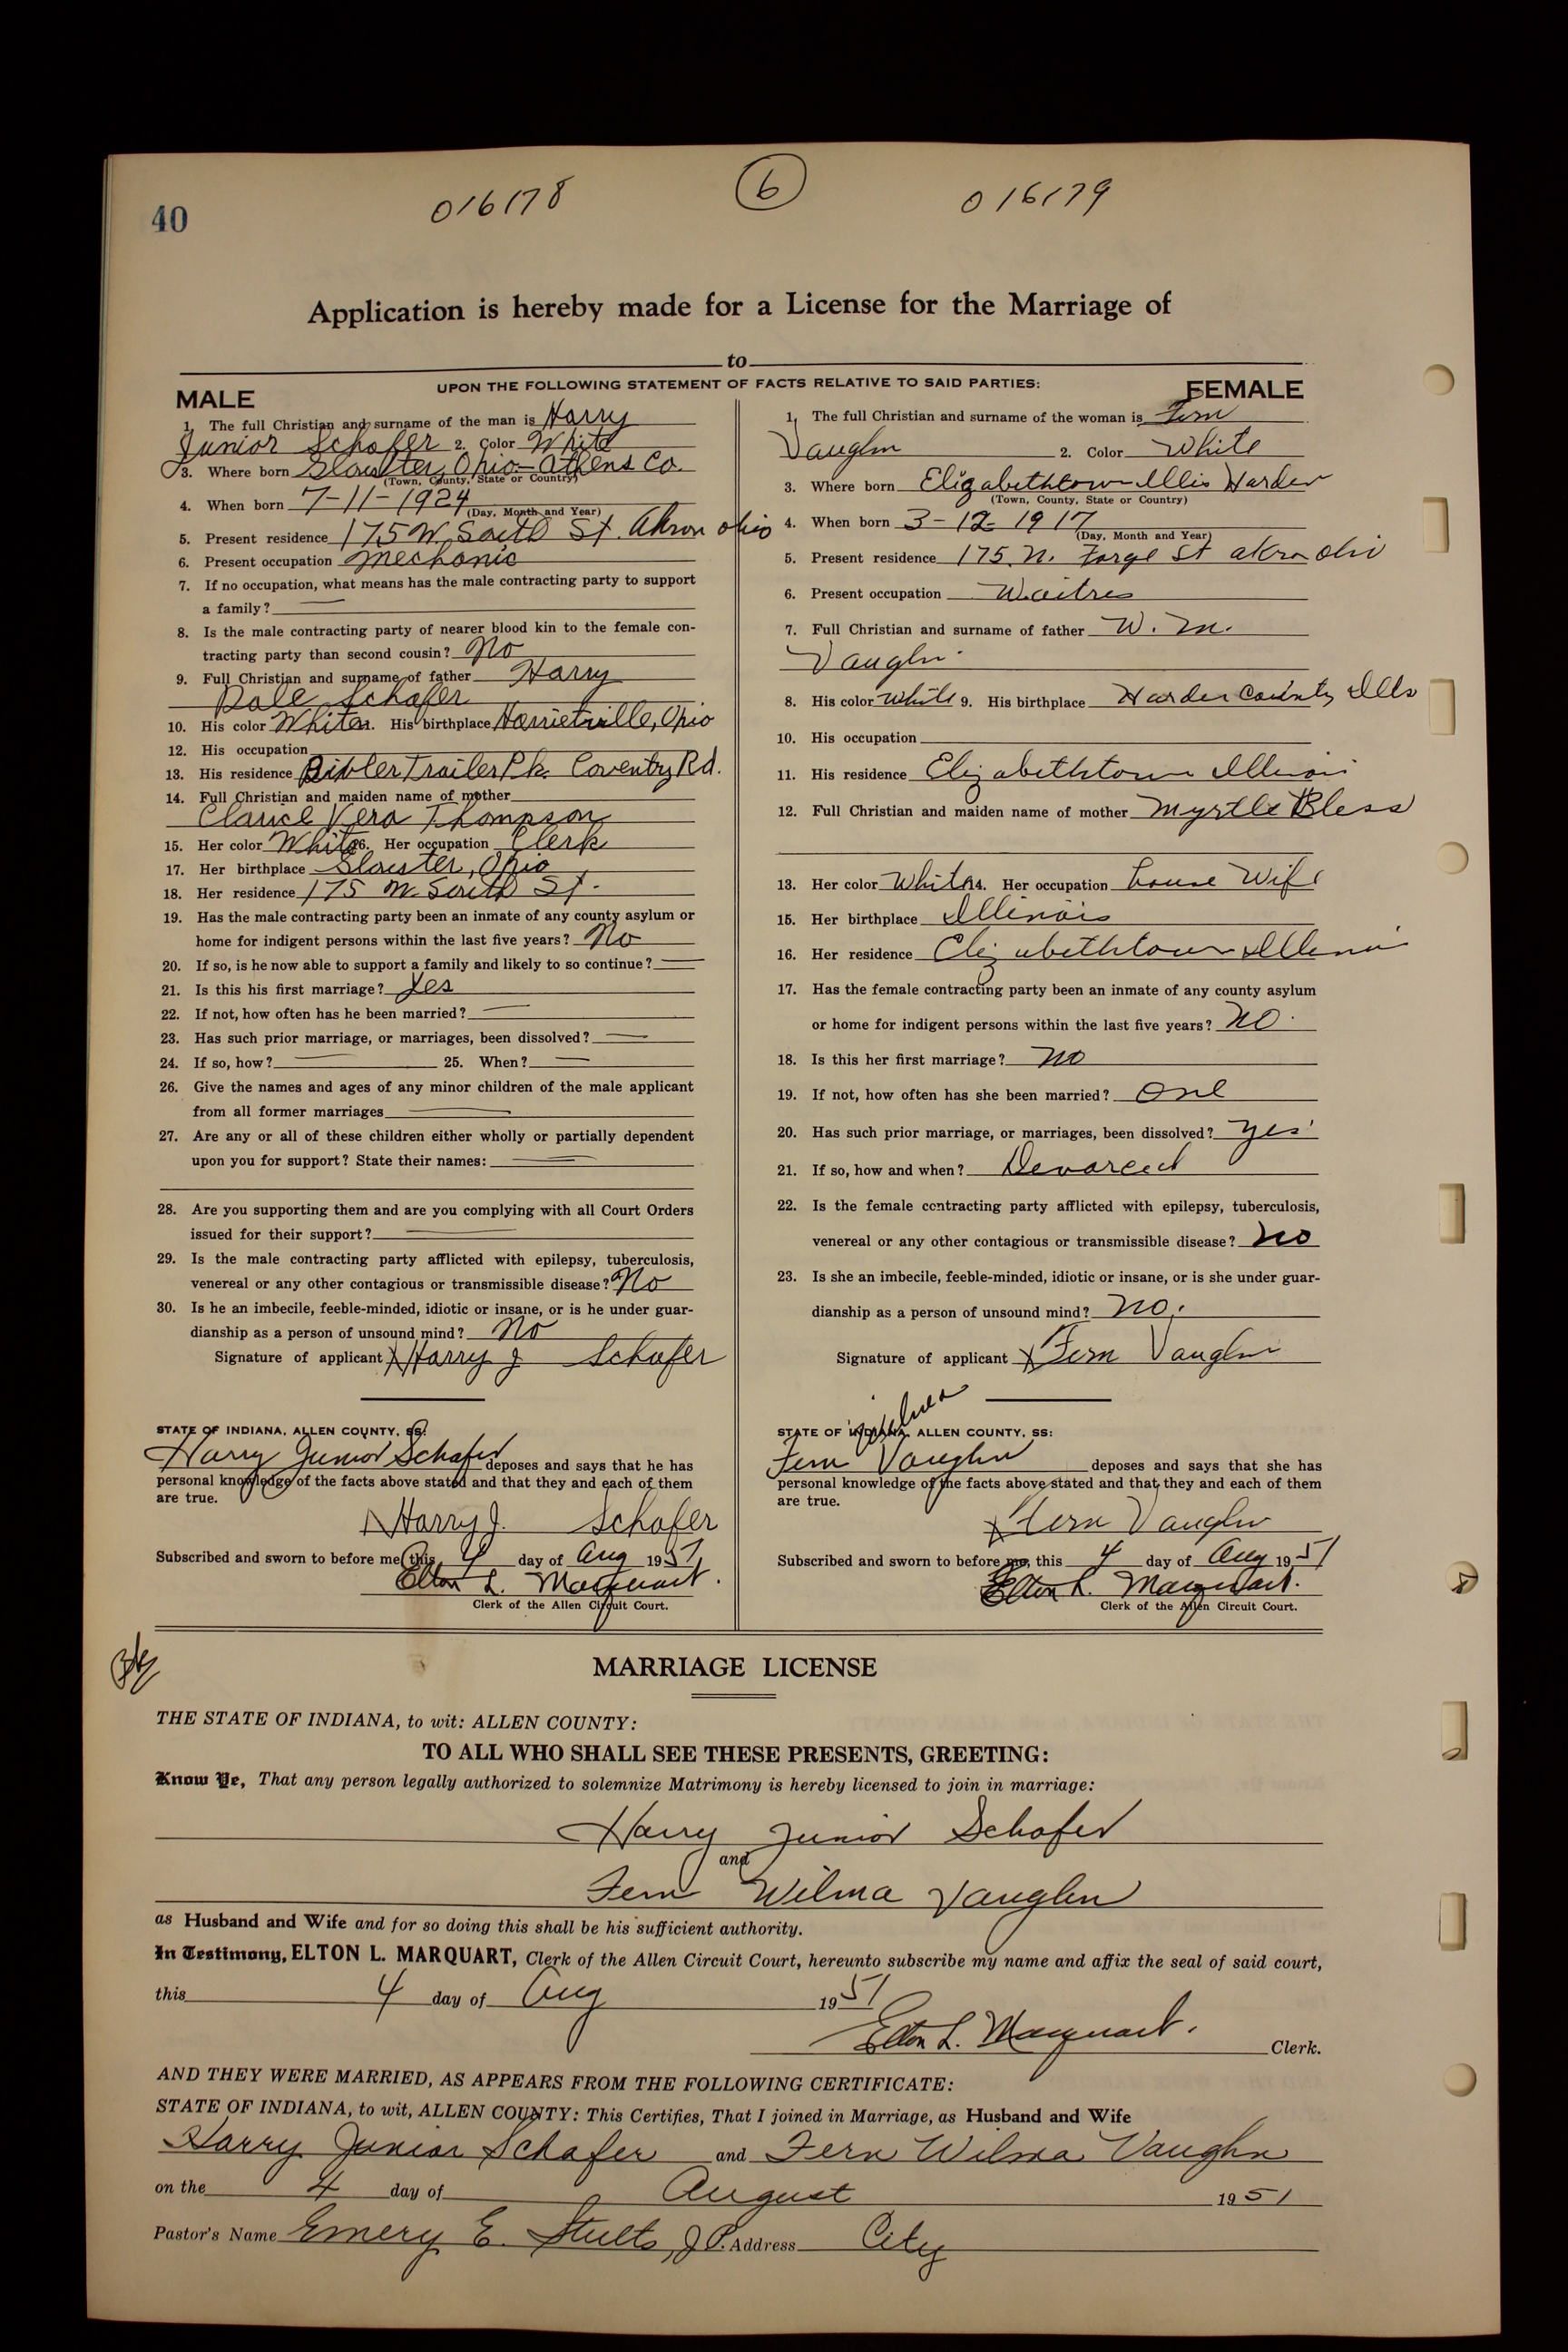 40
016178
6
016179
Application is hereby made for a License for the Marriage of
to
UPON THE FOLLOWING STATEMENT OF FACTS RELATIVE TO SAID PARTIES:
MALE
1. The full Christian and surname of the man is Harry
Junior Schafer 2. Color White
3. Where born Glouster, Ohio - Athens Co.
(Town, County, State or Country)
4. When born 7-11-1924
(Day, Month and Year)
5. Present residence 175 W. South St. Akron Ohio
6. Present occupation Mechanic
7. If no occupation, what means has the male contracting party to support
a family? —
8. Is the male contracting party of nearer blood kin to the female con-
tracting party than second cousin? No
9. Full Christian and surname of father Harry
Dale Schafer
10. His color White 11. His birthplace Harrietsville, Ohio
12. His occupation
13. His residence Bibler Trailer Pk. Coventry Rd.
14. Full Christian and maiden name of mother
Clarice Vera Thompson
15. Her color White 16. Her occupation Clerk
17. Her birthplace Glouster, Ohio
18. Her residence 175 W. South St.
19. Has the male contracting party been an inmate of any county asylum or
home for indigent persons within the last five years? No
20. If so, is he now able to support a family and likely to so continue? —
21. Is this his first marriage? Yes
22. If not, how often has he been married? —
23. Has such prior marriage, or marriages, been dissolved? —
24. If so, how? — 25. When? —
26. Give the names and ages of any minor children of the male applicant
from all former marriages —
27. Are any or all of these children either wholly or partially dependent
upon you for support? State their names: —
28. Are you supporting them and are you complying with all Court Orders
issued for their support? —
29. Is the male contracting party afflicted with epilepsy, tuberculosis,
venereal or any other contagious or transmissible disease? No
30. Is he an imbecile, feeble-minded, idiotic or insane, or is he under guar-
dianship as a person of unsound mind? No
Signature of applicant X Harry J Schafer
STATE OF INDIANA, ALLEN COUNTY, SS:
Harry Junior Schafer deposes and says that he has
personal knowledge of the facts above stated and that they and each of them
are true.
X Harry J. Schafer
Subscribed and sworn to before me, this 4 day of Aug 1951
Elton L. Marquart.
Clerk of the Allen Circuit Court.
FEMALE
1. The full Christian and surname of the woman is Fern
Vaughn 2. Color White
3. Where born Elizabethtown Illis Harden
(Town, County, State or Country)
4. When born 3-12-1917
(Day, Month and Year)
5. Present residence 175 N. Forge St Akron Ohio
6. Present occupation Waitres
7. Full Christian and surname of father W. M.
Vaughn
8. His color White 9. His birthplace Harden County Ills
10. His occupation
11. His residence Elizabethtown Illinois
12. Full Christian and maiden name of mother Myrtle Bless
13. Her color White 14. Her occupation house Wife
15. Her birthplace Illinois
16. Her residence Elizabethtown Illinois
17. Has the female contracting party been an inmate of any county asylum
or home for indigent persons within the last five years? No
18. Is this her first marriage? No
19. If not, how often has she been married? One
20. Has such prior marriage, or marriages, been dissolved? Yes
21. If so, how and when? Devorced
22. Is the female contracting party afflicted with epilepsy, tuberculosis,
venereal or any other contagious or transmissible disease? No
23. Is she an imbecile, feeble-minded, idiotic or insane, or is she under guar-
dianship as a person of unsound mind? No.
Signature of applicant X Fern Vaughn
STATE OF INDIANA, ALLEN COUNTY, SS:
Fern Vaughn deposes and says that she has
personal knowledge of the facts above stated and that they and each of them
are true.
X Fern Vaughn
Subscribed and sworn to before me, this 4 day of Aug 1951
Elton L. Marquart.
Clerk of the Allen Circuit Court.
MARRIAGE LICENSE
THE STATE OF INDIANA, to wit: ALLEN COUNTY:
TO ALL WHO SHALL SEE THESE PRESENTS, GREETING:
Know Ye, That any person legally authorized to solemnize Matrimony is hereby licensed to join in marriage:
Harry Junior Schafer
and
Fern Wilma Vaughn
as Husband and Wife and for so doing this shall be his sufficient authority.
In Testimony, ELTON L. MARQUART, Clerk of the Allen Circuit Court, hereunto subscribe my name and affix the seal of said court,
this 4 day of Aug 1951
Elton L. Marquart. Clerk.
AND THEY WERE MARRIED, AS APPEARS FROM THE FOLLOWING CERTIFICATE:
STATE OF INDIANA, to wit, ALLEN COUNTY: This Certifies, That I joined in Marriage, as Husband and Wife
Harry Junior Schafer and Fern Wilma Vaughn
on the 4 day of August 1951
Pastor's Name Emery E. Stults, J.P. Address City